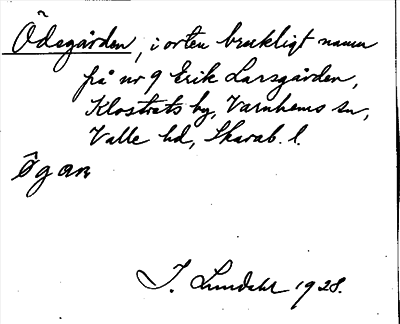 Ödegården, i orten brukligt namn
på nr 9 Erik Larsgården,
Klostrets by, Varnhems sn,
Valle hd, Skarab. l.
ögan
I. Lundahl 1928.